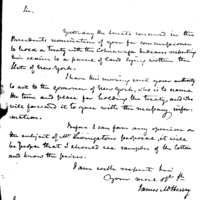 Sir.
Yesterday the Senate concurred in the
Presidents nomination of you for commissioner
to hold a treaty with the Cohnawaga Indians respecting
their claim to a parcel of land lying within the
State of New York.
I have this morning sent your authority
to act to the Governor of New York, who is to name
the time and place for holding the treaty, and who
will forward it to you with the necessary infor-
mation.
Before I can form any opinion on
the subject of Mr Livingstons proposal, it will
be proper that I should see samples of the cotton
and know the prices.
I am with respect Sir
Your most obt St
James McHenry